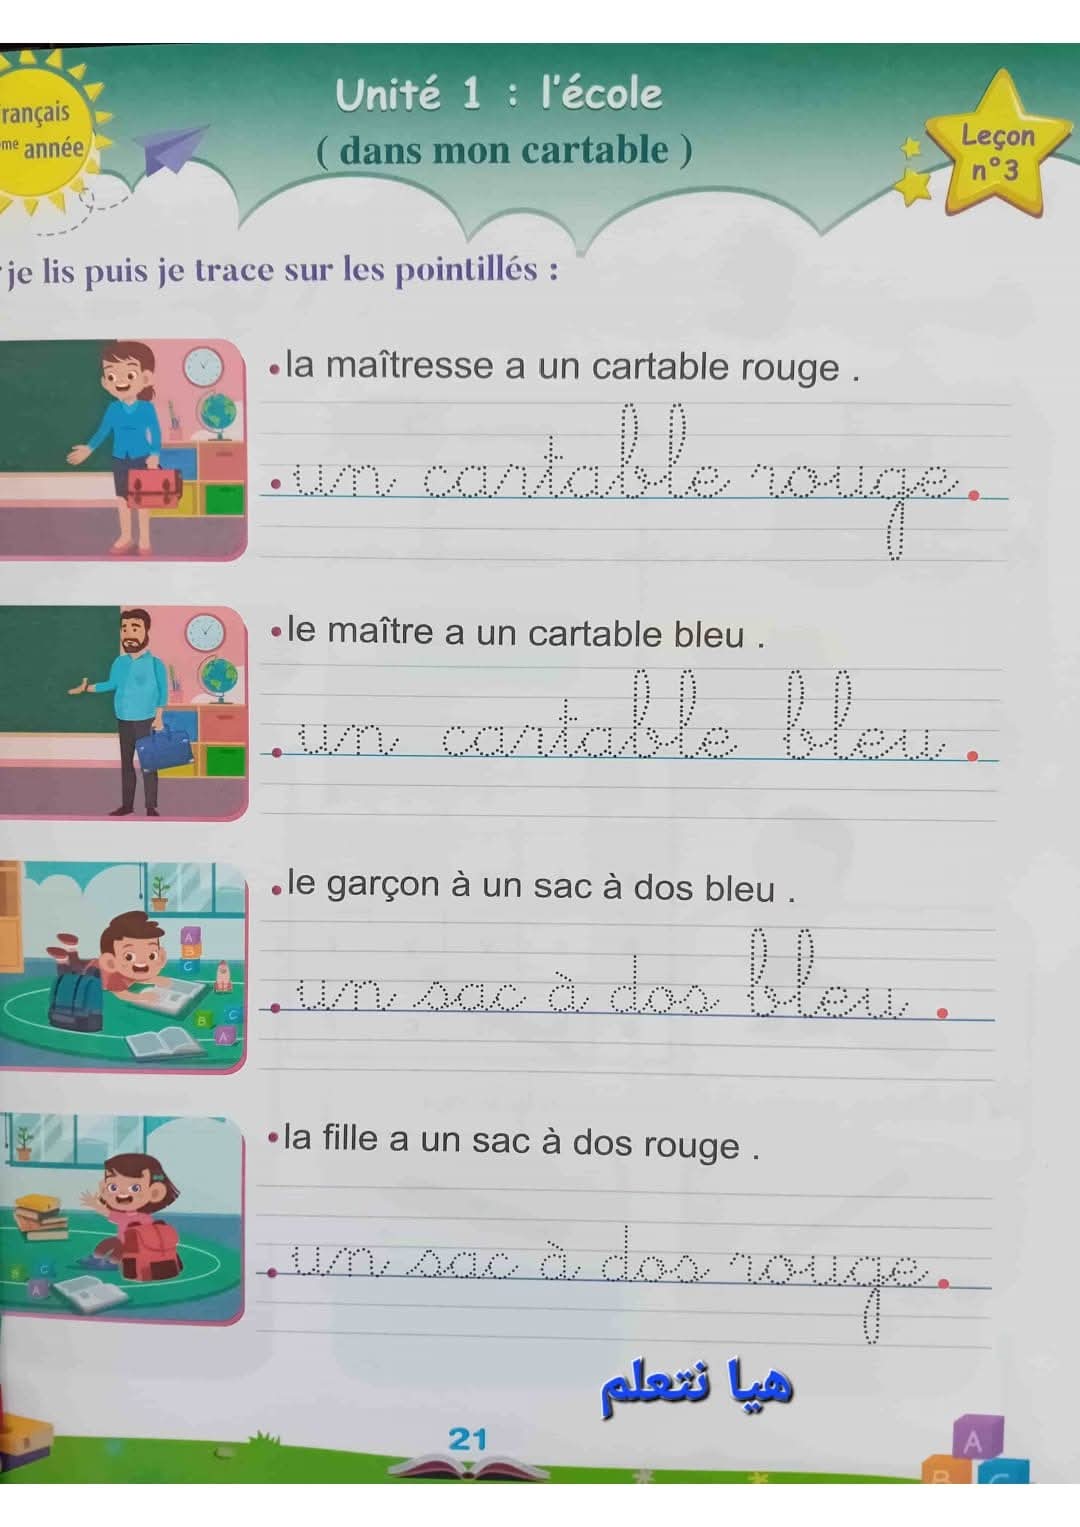 Unité 1 : l'école
rançais
me année
( dans mon cartable )
Leçon
n°3
je lis puis je trace sur les pointillés :
•la maîtresse a un cartable rouge .
•un cartable rouge.
•le maître a un cartable bleu .
•un cartable bleu.
•le garçon à un sac à dos bleu .
•un sac à dos bleu.
•la fille a un sac à dos rouge .
•un sac à dos rouge.
هيا نتعلم
21
A
B
C